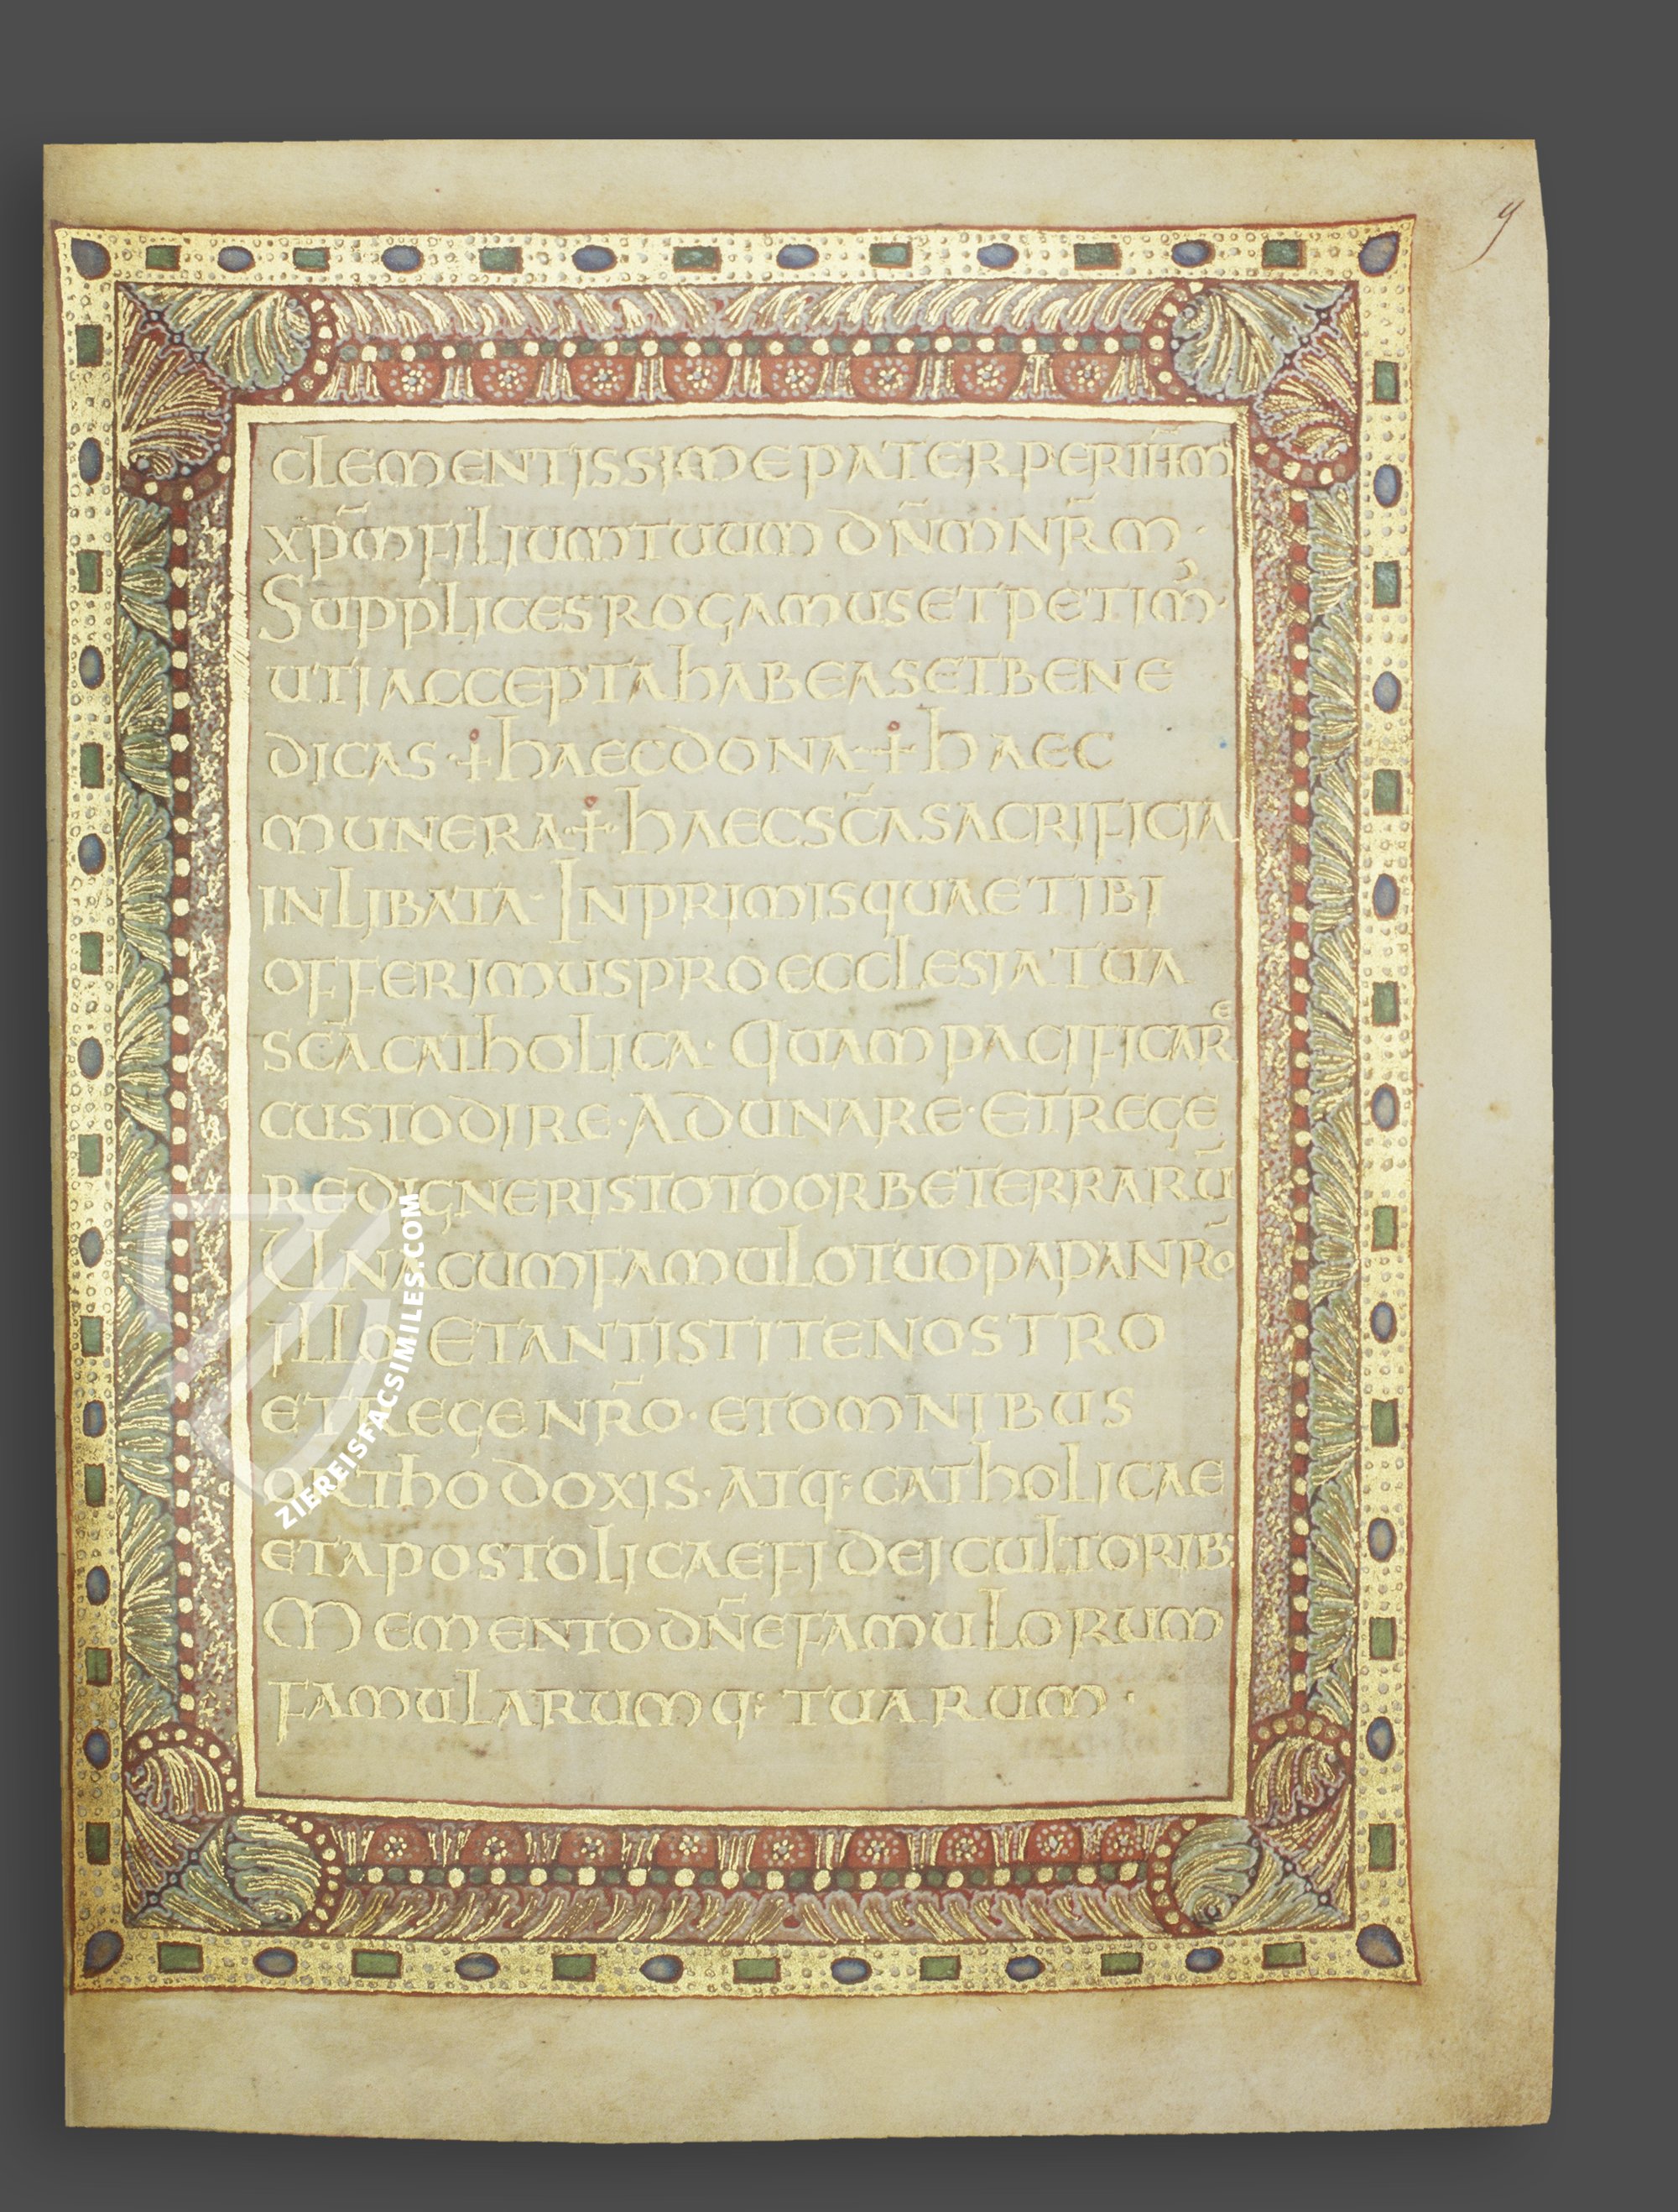 9
CLEMENTISSIME PATER PER IHM̄
XP̄M FILIUM TUUM DN̄M NR̄M ·
SUPPLICES ROGAMUS ET PETIM᾿·
UTI ACCEPTA HABEAS ET BENE
DICAS · + HAEC DONA · + HAEC
MUNERA · + HAEC SC̄A SACRIFICIA
INLIBATA · INPRIMIS QUAE TIBI
OFFERIMUS PRO ECCLESIA TUA
SC̄A CATHOLICA · QUAM PACIFICARE
CUSTODIRE · ADUNARE · ET REGE
RE DIGNERIS TOTO ORBE TERRARŪ
UNA CUM FAMULO TUO PAPA NR̄O
ILLO ET ANTISTITE NOSTRO
ET REGE NR̄O · ET OMNIBUS
ORTHODOXIS · ATQ; CATHOLICAE
ET APOSTOLICAE FIDEI CULTORIB;
MEMENTO DN̄E FAMULORUM
FAMULARUMQ; TUARUM ·
ZIEREISFACSIMILES.COM